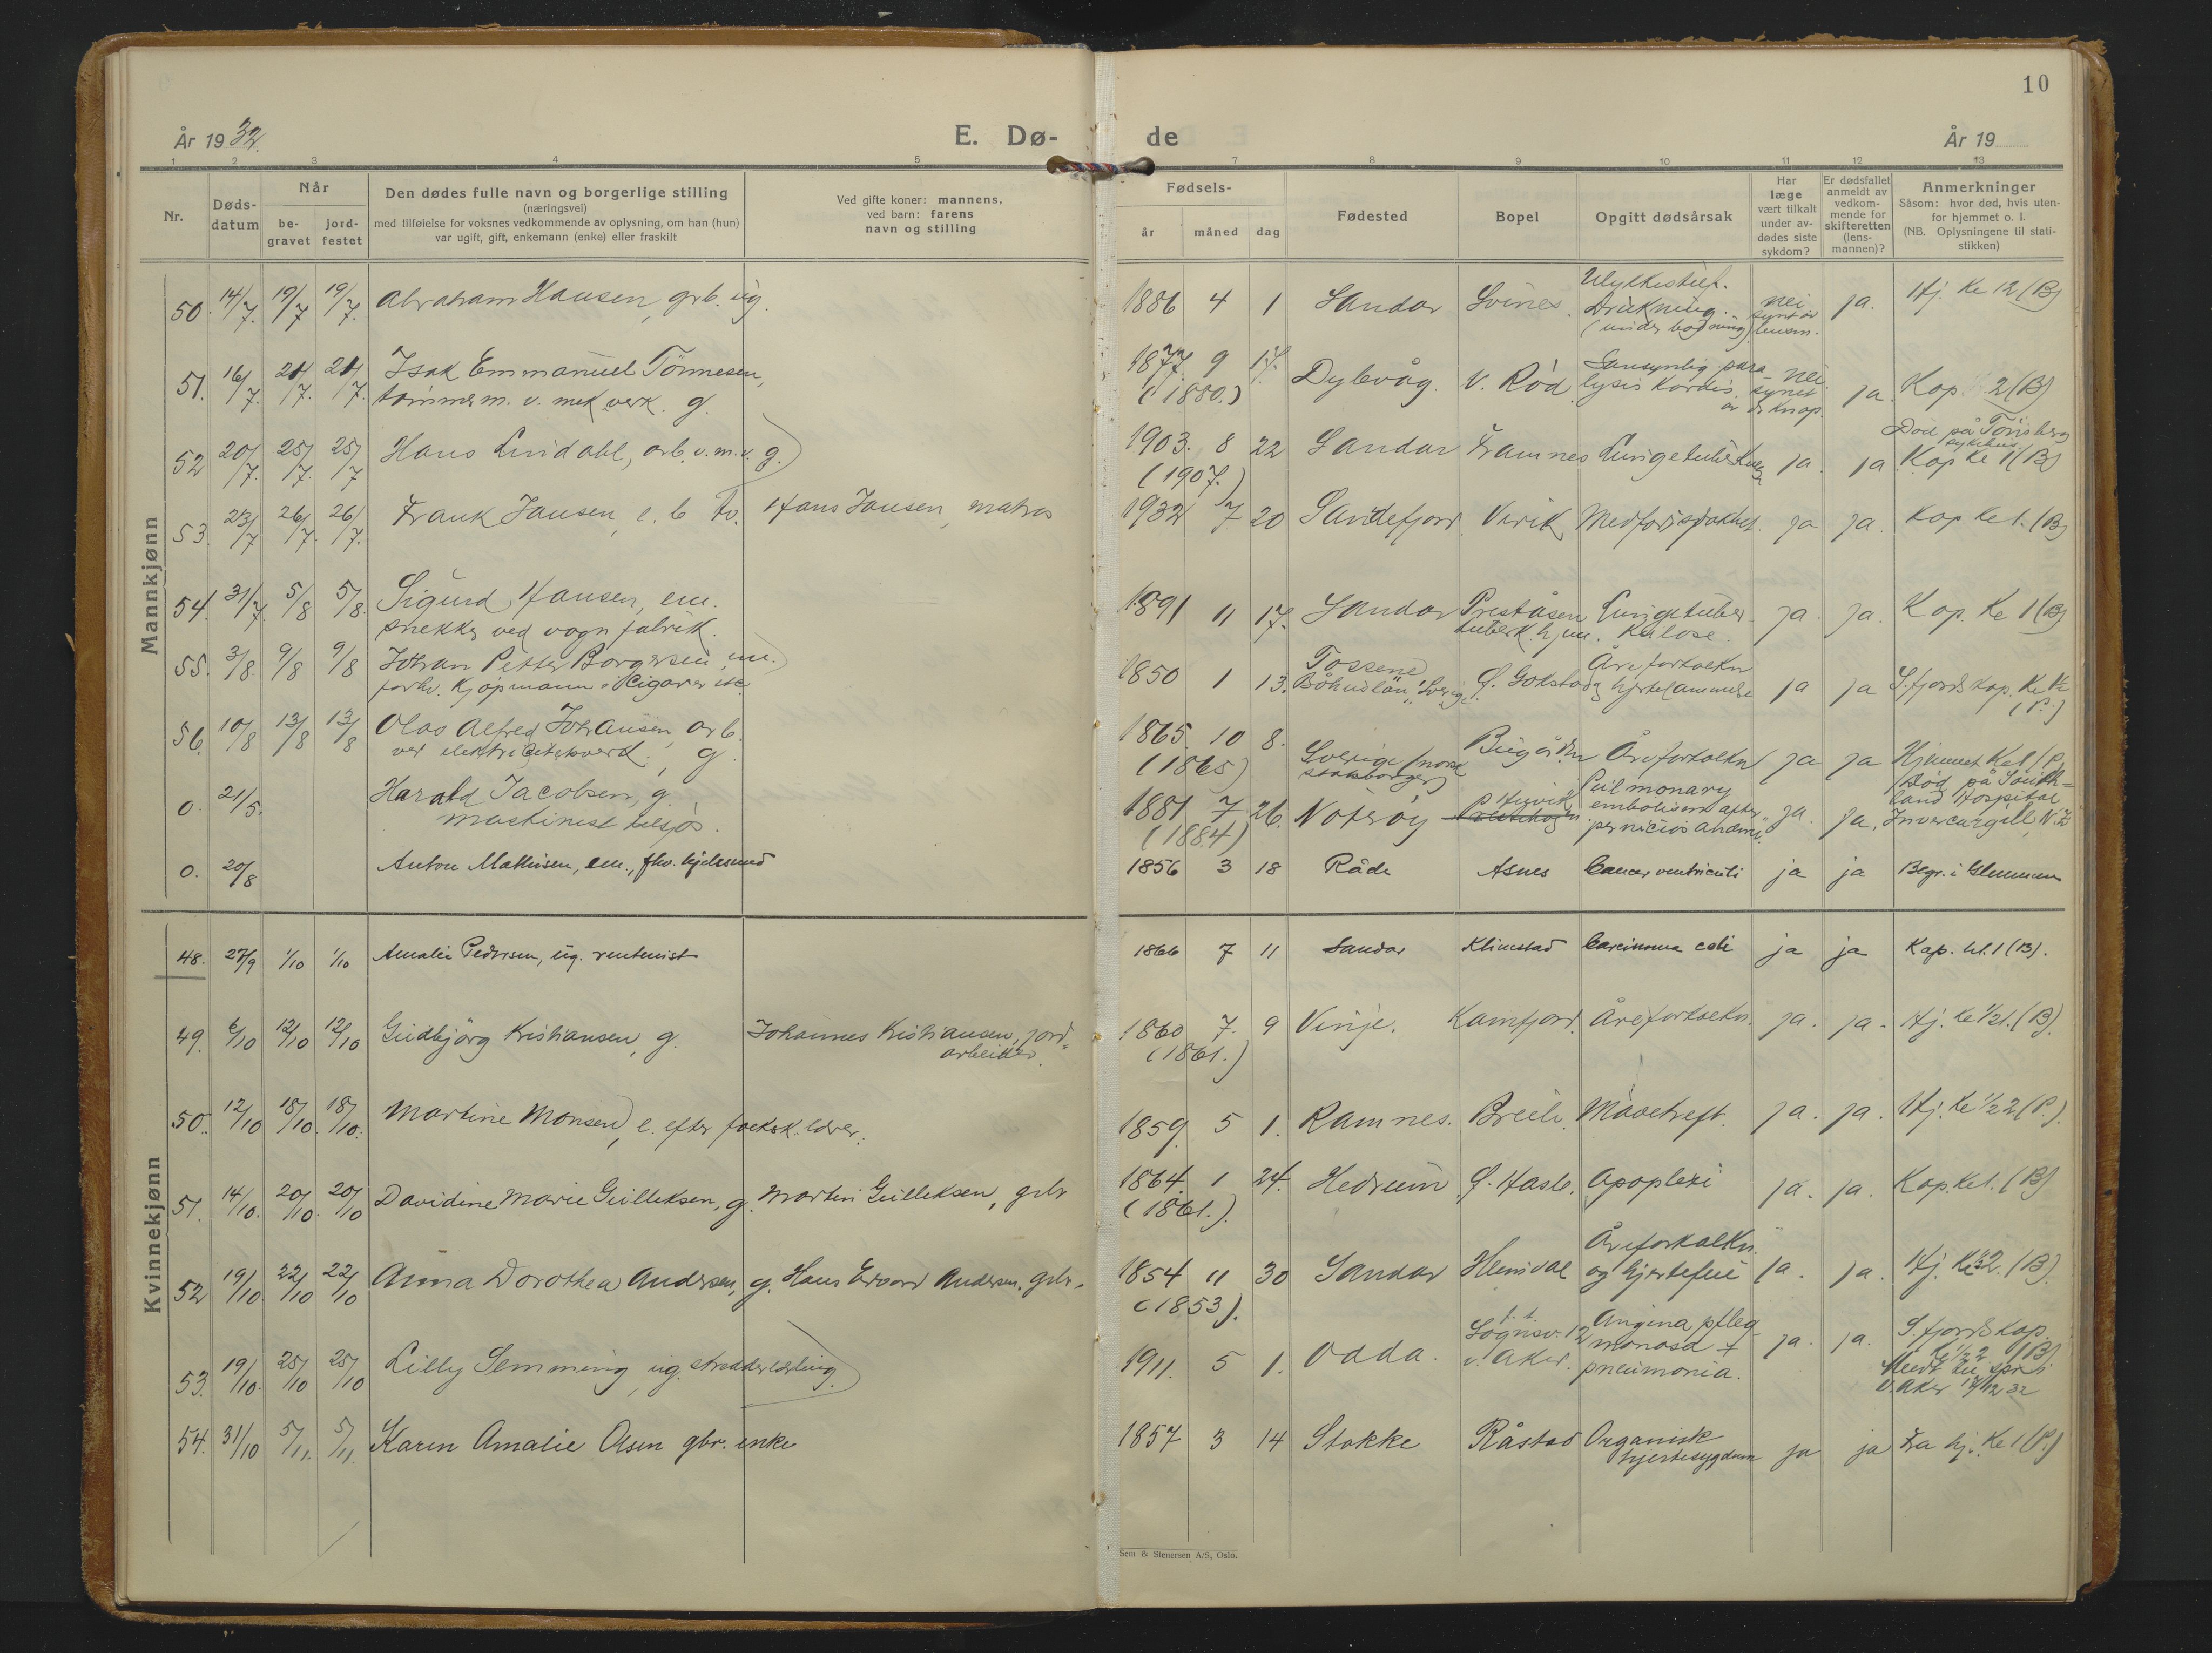 10
År 1932.
E. Dø-
de
År 19
1 2 3 4 5
7 8 9 10 11 12 13
Nr.
Døds-
datum
Når
be-
gravet
jord-
festet
Den dødes fulle navn og borgerlige stilling
(næringsvei)
med tilføielse for voksnes vedkommende av oplysning, om han (hun)
var ugift, gift, enkemann (enke) eller fraskilt
Ved gifte koner: mannens,
ved barn: farens
navn og stilling
Fødsels-
år
måned
dag
Fødested
Bopel
Opgitt dødsårsak
Har
læge
vært tilkalt
under av-
dødes siste
sykdom?
Er dødsfallet
anmeldt av
vedkom-
mende for
skifteretten
(lens-
mannen)?
Anmerkninger
Såsom: hvor død, hvis uten-
for hjemmet o. l.
(NB. Oplysningene til stati-
stikken)
Mannkjønn
50. 14/7. 19/7 19/7. Abraham Hansen, grb. ug.
1886 4 1 Sandar Svines. Ulykkestilf. Drukning. (under badning) nei synt av lensm. ja. Hj. Ke 12 (B)
51. 16/7. 21/7. 21/7. Isak Emmanuel Tönnesen,
tømmerm. v. mek verk. g.
1877. 9 17. Dybvåg. V. Rød Sansynlig para
(1880.) lysis Kordis. nei. synet av dr Knap. ja Kop. 2 (B)
52 20/7. 25/7. 25/7 Hans Lindahl, arb. v. m. v. g.
1903. 8 22 Sandar Framnes Lungetuberkul. ja. ja Død på Tönsberg sykehus
(1907.) Kap Ke 1 (B)
53. 23/7 26/7. 26/7. Frank Jansen, e. b. tv. Hans Jansen, matros
1932 7 20 Sandefjord. Virik Medf. svakhet. ja ja. Kap Ke 1. (B)
54. 31/7. 5/8 5/8. Sigurd Hansen, em.
snekker ved vogn fabrik.
1891 11 17. Sandar Preståsen Lungetuber-
tuberk. hjem. kulose. ja. ja. Kap. Ke 1 (B)
55. 3/8. 9/8 9/8 Johan Petter Borgersen em.
forhv. Kjøpmann i Cigarer etc
1850 1 13. Tossene Åreforkalkn
Båhuslän, Sverige. Ø. Gokstad og hjertelammelse ja ja S.fjords kap. Ke ½ (P.)
56. 10/8 13/8 13/8 Olas Alfred Johansen, arb.
ved elektricitetsverk. g.
1865 10 8. Sverige (norsk Bugården Åreforkalkn ja ja Hjemmet Ke 1 (P.)
(1865) statsborger)
0. 21/5. Harald Jacobsen, g.
maskinist tilsjøs.
1881 7 26. Nøterøy Hesvik Pulmonary
(1884) embolism after
pernicios anæmi. ja. ja. (Död på South-
land Hospital
Invercargill, N.Z
0. 20/8 Anton Mathisen, em., fhv. hjelmsmed
1856 3 18 Råde Asnes Cancer ventriculi ja ja Begr. i Glemmen
Kvinnekjønn
48. 27/9 1/10 1/10 Amalie Pedersen, ug. rentenist
1866 7 11 Sandar Klinestad Carcinoma coli ja ja Kap. kl. 1 (B).
49. 6/10 12/10 12/10 Gudbjörg Kristiansen, g. Johannes Kristiansen, jord-
arbeider.
1860 7. 9 Vinje. Kamfjord. Åreforkalkn. ja. ja. Hj. Ke ½1. (B).
(1861.)
50. 12/10 18/10. 18/10. Martine Monsen, e. efter folksk. lærer.
1859. 5 1. Ramnes. Breili. Mavekreft. ja. ja. Hj. Ke ½2 (P.)
51. 14/10. 20/10. 20/10 Davidine Marie Gulliksen, g. Martin Gulliksen, grbr
1864. 1 24. Hedrum Ø. Hasle. Apoplexi ja. ja. Kap. Ke 1. (B)
(1861.).
52 19/10 22/10 22/10 Anna Dorothea Andersen, g. Hans Edvard Andersen, grbr.
1854 11 30 Sandar Hemsdal Åreforkalkn.
(1853). og hjertefeil ja. ja. Hj. Ke ½2. (B).
53. 19/10. 25/10 25/10 Lilly Semming, ug. skredderlærling
1911. 5 1. Odda. Sognsv. 12 Angina phleg-
v. Aker. monosa +
pneumonia. ja. ja. S. fjords kap.
Ke ½2 (B)
Meldt til spr. i
V. Aker 12/12 32
54. 31/10 5/11. 5/11. Karen Amalie Olsen gbr. enke
1857 3 14 Stokke Råstad Organisk
hjertesygdom ja ja Fra hj. Ke 1 (P.)
Sem & Stenersen A/S, Oslo.